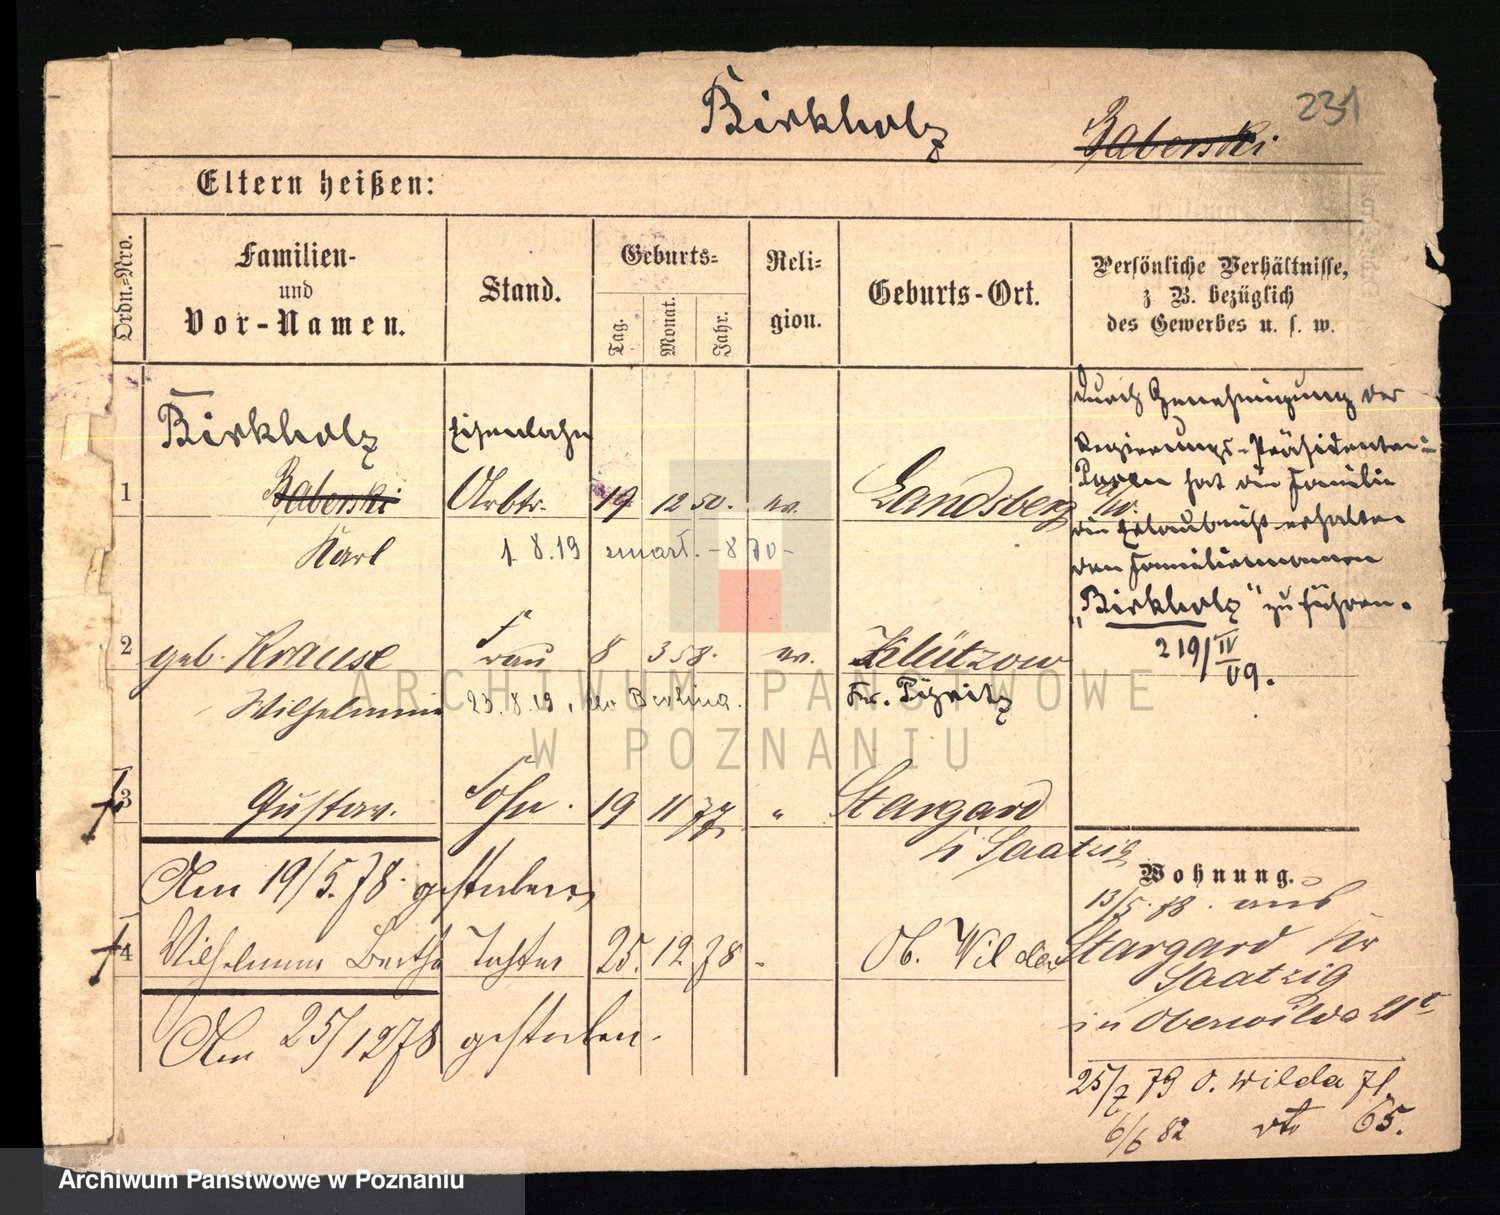 231
Birkholz
Baberski
Eltern heißen:
Ordn.-Nro.
Familien-
und
Vor-Namen.
Stand.
Geburts-
Tag.
Monat.
Jahr.
Reli-
gion.
Geburts-Ort.
Persönliche Verhältnisse,
z B. bezüglich
des Gewerbes u. s. w.
Birkholz Eisenbahn
1 Baberski Arbtr. 19 12 50. ev. Landsberg a/w.
Karl 1.8.19 zmarł. -870-
2 geb. Krause Frau 8 3 58. ev. Klützow
Wilhelmine 23.8.19. do Berlina. Kr. Pyritz
3 Gustav. Sohn. 19 11 77 " Stargard
Kr Saatzig
Am 19/5.78. gestorben
4 Wilhelmine Bertha Tochter 25. 12. 78 Ob. Wilda
Am 25/12 78 gestorben.
Durch Genehmigung des
Regierungs-Präsidenten in
Posen hat die Familie
die Erlaubniß erhalten
den Familiennamen
„Birkholz" zu führen.
219/IV
09.
Wohnung.
13/5.78. aus
Stargard Kr
Saatzig
in Oberwilda 21c
25/7 79 O. Wilda 71.
6/6 82 dto 65.
ARCHIWUM PAŃSTWOWE
W POZNANIU
Archiwum Państwowe w Poznaniu